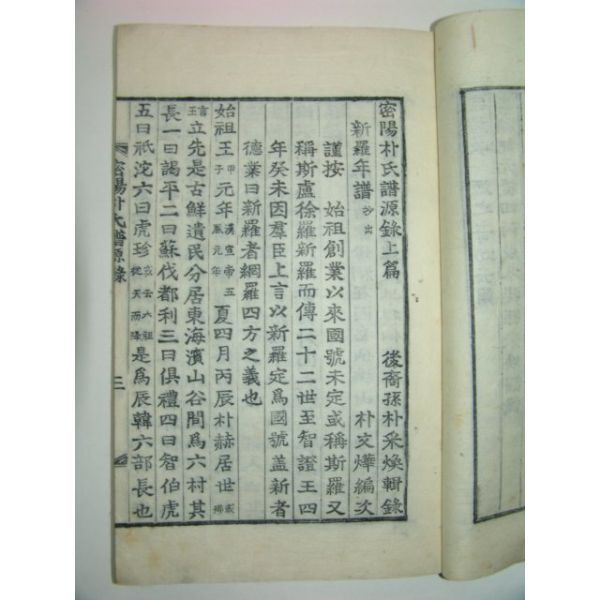 密陽朴氏譜源錄上篇 後裔孫朴采煥輯錄
新羅年譜 抄出 朴文燁編次
謹按 始祖創業以來國號未定或稱斯羅又
稱斯盧徐羅新羅而傳二十二世至智證王四
年癸未因羣臣上言以新羅定爲國號盖新者
德業日新羅者網羅四方之義也
始祖王 甲子 元年 漢宣帝五鳳元年 夏四月丙辰朴赫居世 或
立先是古鮮遺民分居東海濱山谷間爲六村其
長一曰謁平二曰蘇伐都利三曰俱禮四曰智伯虎
五曰祇沱六曰虎珍 從天而降 是爲辰韓六部長也
密陽朴氏譜源錄 三